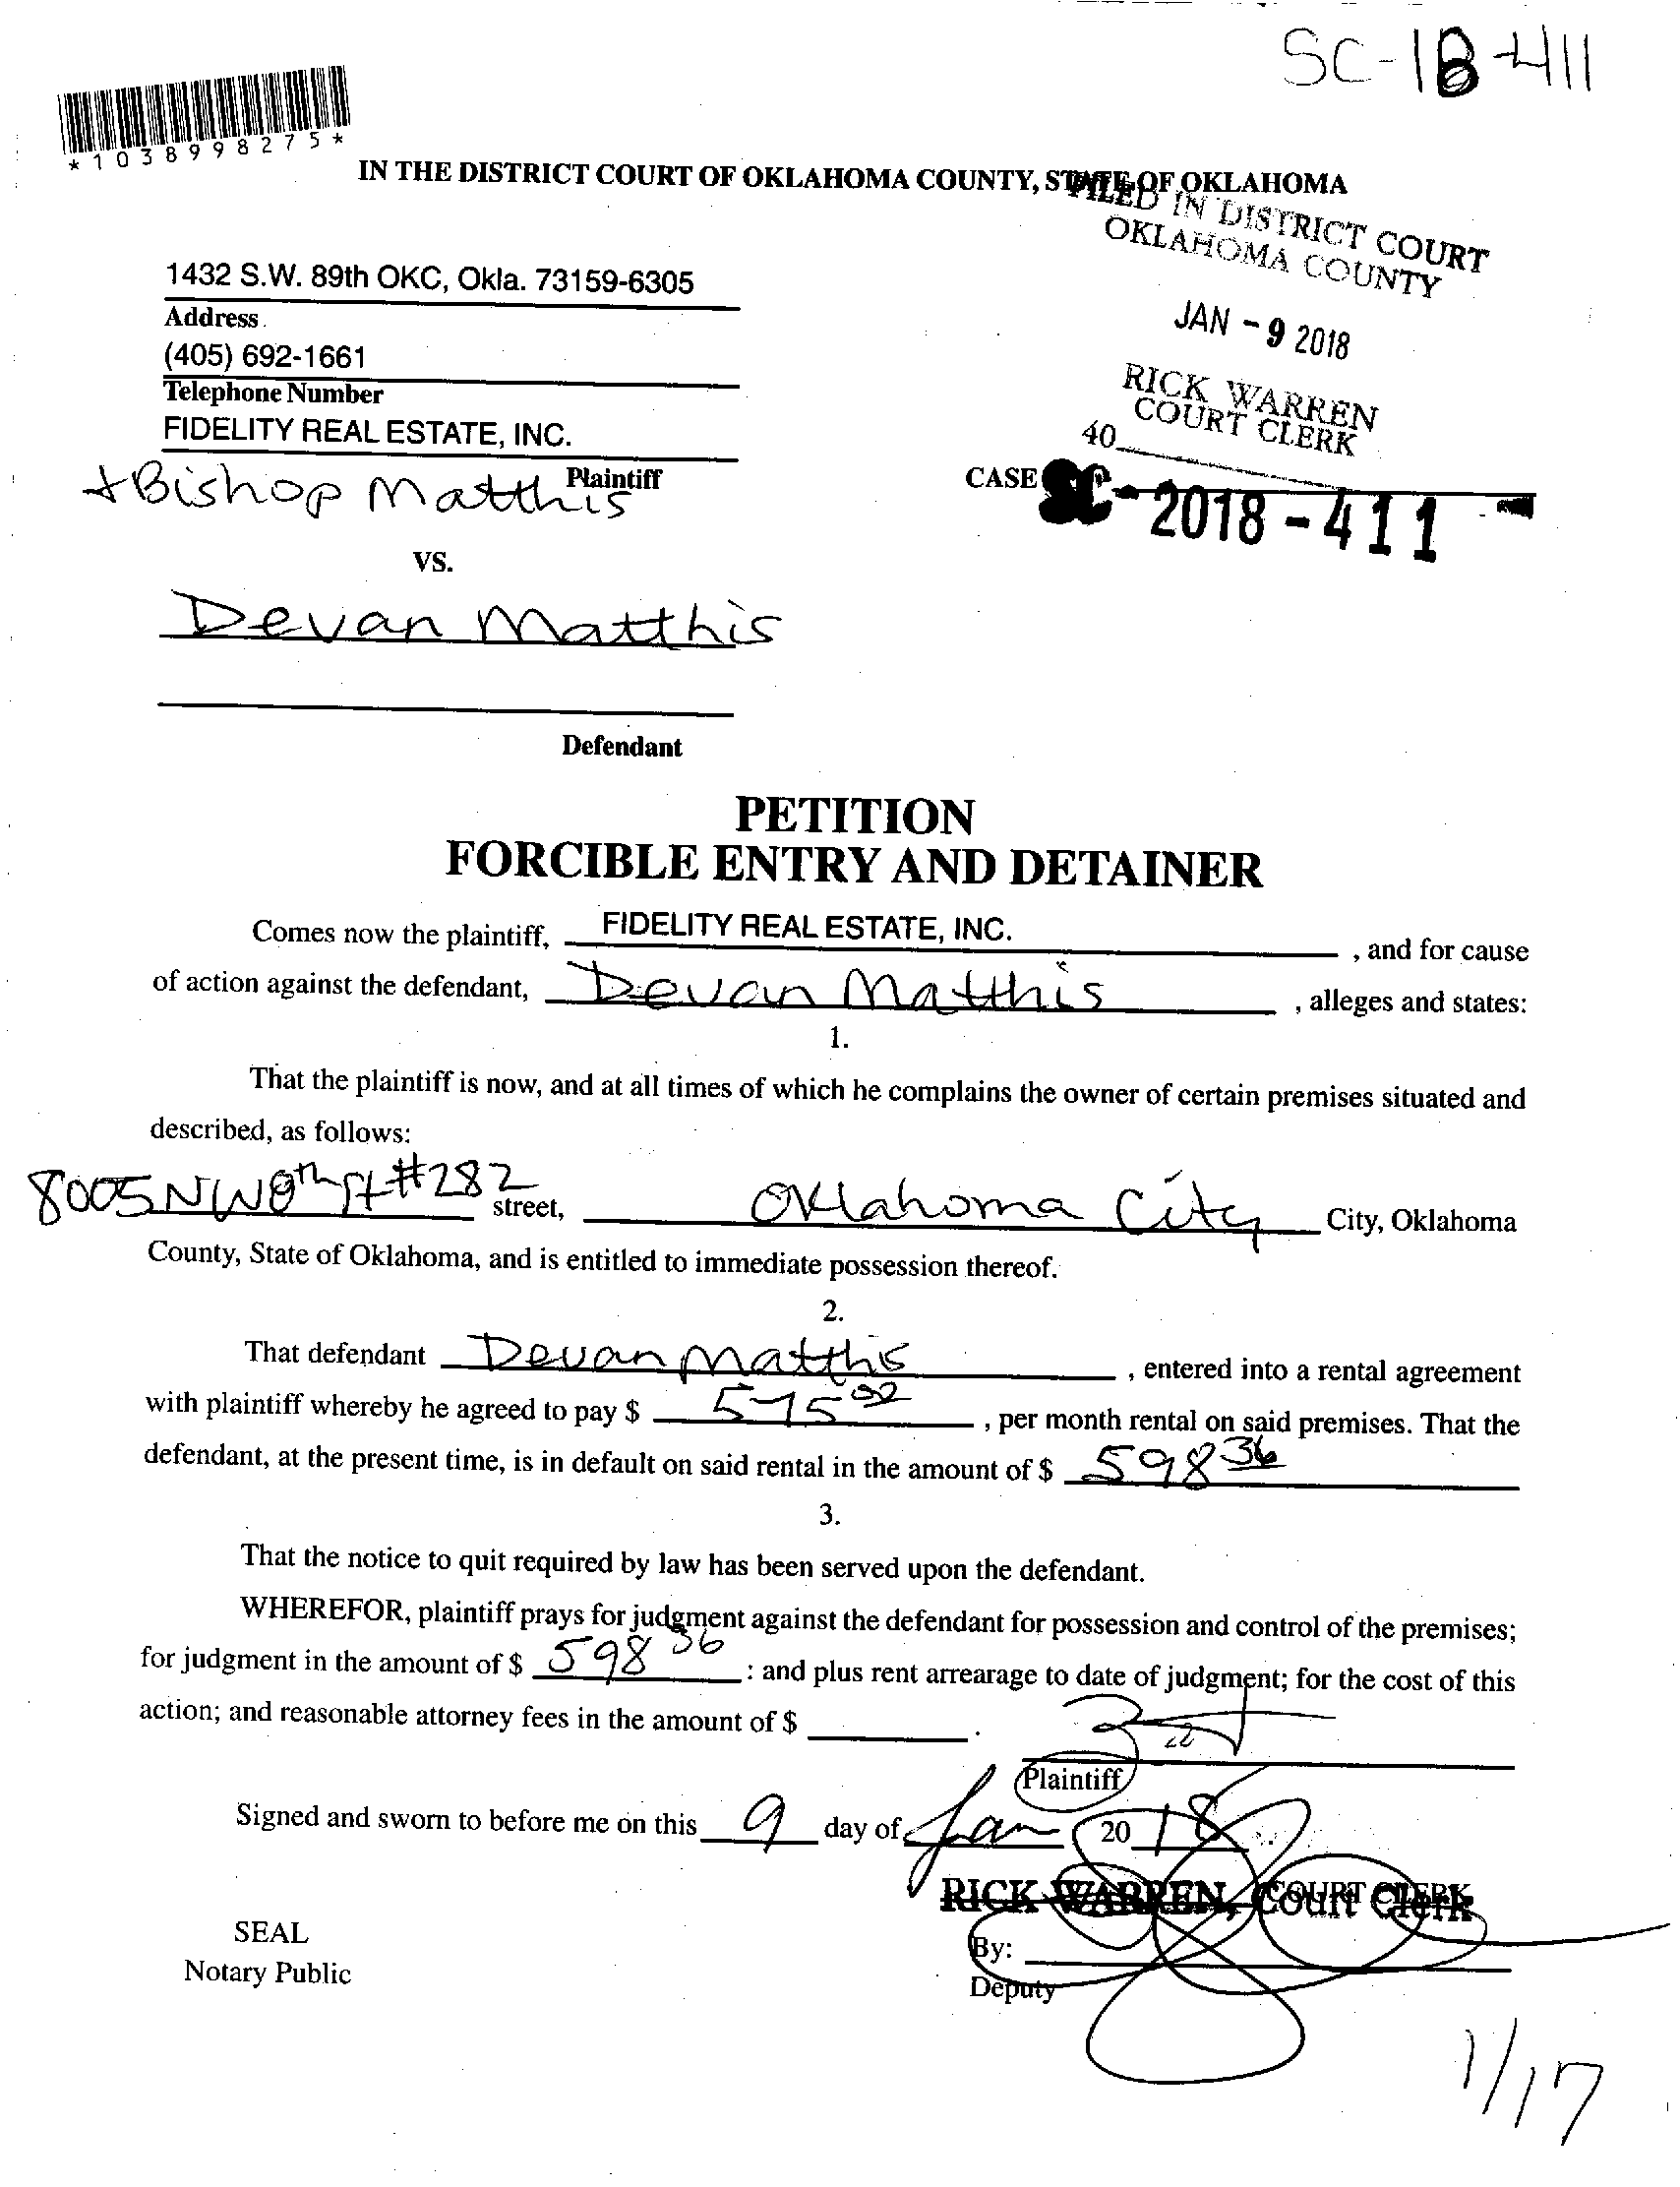 SC-18-411
*1038998275*
IN THE DISTRICT COURT OF OKLAHOMA COUNTY, STATE OF OKLAHOMA
FILED IN DISTRICT COURT
OKLAHOMA COUNTY
1432 S.W. 89th OKC, Okla. 73159-6305
Address
JAN - 9 2018
(405) 692-1661
Telephone Number
RICK WARREN
COURT CLERK
40
FIDELITY REAL ESTATE, INC.
Plaintiff
+ Bishop Matthis
CASE SC-2018-411
VS.
Devan Matthis
Defendant
PETITION
FORCIBLE ENTRY AND DETAINER
Comes now the plaintiff, FIDELITY REAL ESTATE, INC. , and for cause
of action against the defendant, Devan Matthis , alleges and states:
1.
That the plaintiff is now, and at all times of which he complains the owner of certain premises situated and
described, as follows:
8005 NW 8th St #282 street, Oklahoma City City, Oklahoma
County, State of Oklahoma, and is entitled to immediate possession thereof.
2.
That defendant Devan Matthis , entered into a rental agreement
with plaintiff whereby he agreed to pay $ 575 00 , per month rental on said premises. That the
defendant, at the present time, is in default on said rental in the amount of $ 598 36
3.
That the notice to quit required by law has been served upon the defendant.
WHEREFOR, plaintiff prays for judgment against the defendant for possession and control of the premises;
for judgment in the amount of $ 598 36 : and plus rent arrearage to date of judgment; for the cost of this
action; and reasonable attorney fees in the amount of $ .
Plaintiff
Signed and sworn to before me on this 9 day of Jan 20 18
RICK WARREN, Court Clerk
COURT CLERK
SEAL
By:
Notary Public
Deputy
1/17